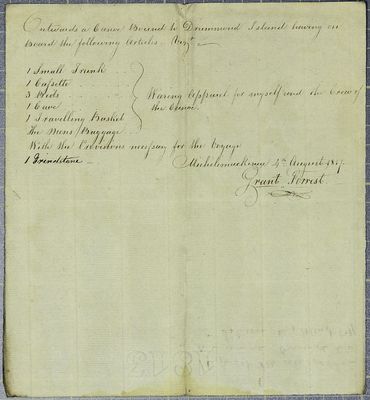 Outwards a Canoe Bound to Drummond Island having on
Board the following Articles
1 Small Trunk
1 Cassette
3 Beds
1 Cave
1 Travelling Basket
The Mens Baggage
Waring Apparel for myself and the Crew of
the Canoe.
With the Provisions necessary for the Voyage
1 Grindstone
Michilimackinac 4th August 1817.
Grant Forrest